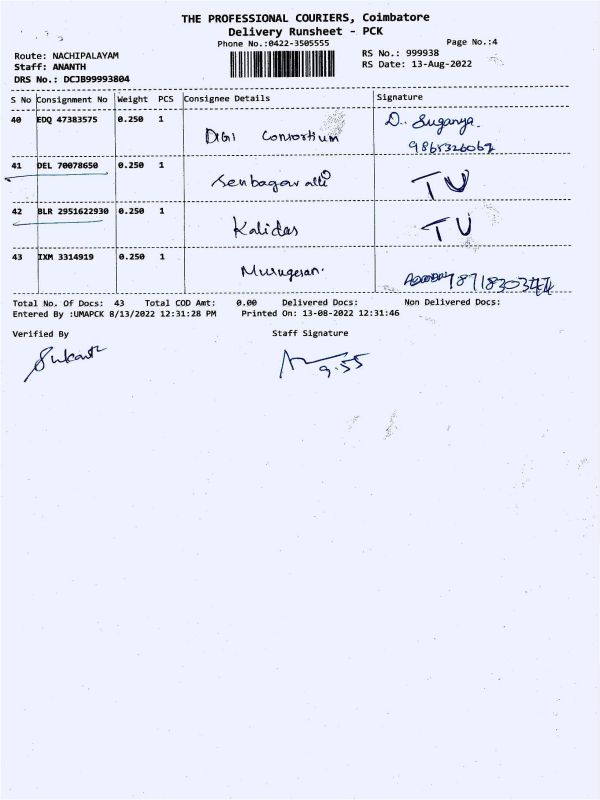 THE PROFESSIONAL COURIERS, Coimbatore
Delivery Runsheet - PCK
Phone No.:0422-3505555
Page No.:4
Route: NACHIPALAYAM
RS No.: 999938
Staff: ANANTH
RS Date: 13-Aug-2022
DRS No.: DCJB99993804
S No Consignment No Weight PCS Consignee Details Signature
40 EDQ 47383575 0.250 1 DIGI Consortium D. Suganya.
9865326067
41 DEL 70078650 0.250 1 Senbagavalli TU
42 BLR 2951622930 0.250 1 Kalidas TU
43 IXM 3314919 0.250 1 Murugesan.
Total No. Of Docs: 43 Total COD Amt: 0.00 Delivered Docs: Non Delivered Docs:
Entered By :UMAPCK 8/13/2022 12:31:28 PM Printed On: 13-08-2022 12:31:46
Verified By Staff Signature
9.55